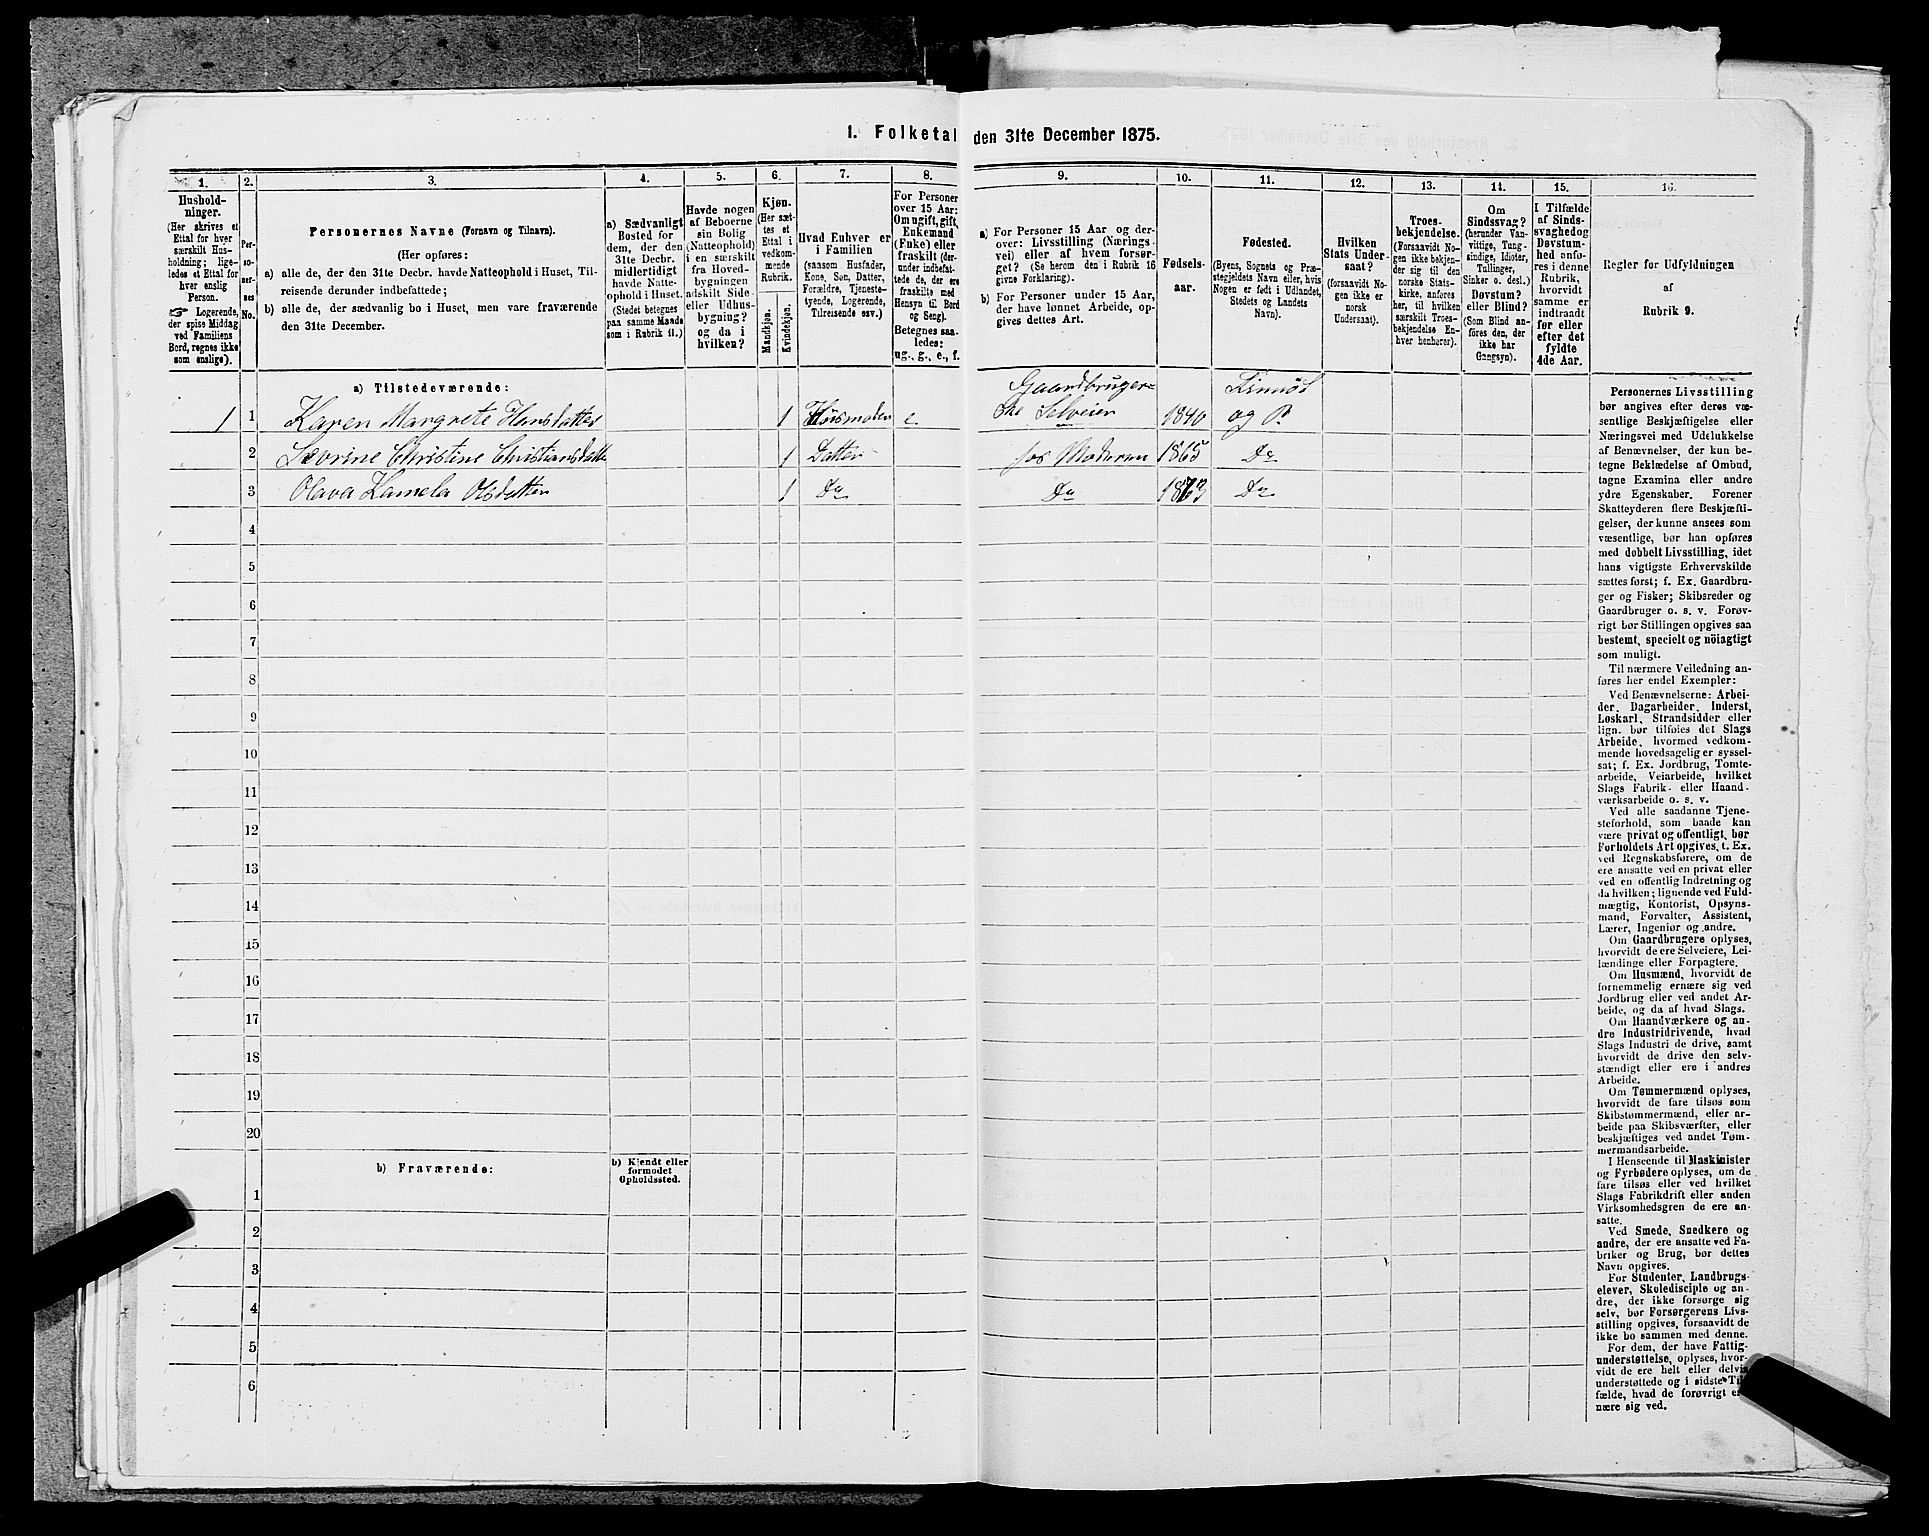 1. Folketal den 31te December 1875.
1.
2.
3.
4.
5.
6.
7.
8.
9.
10.
11.
12.
13.
14.
15.
16.
Hushold-
ninger.
(Her skrives et
Ettal for hver
særskilt Hus-
holdning; lige-
ledes et Ettal for
hver enslig
Person.
☞ Logerende,
der spise Middag
ved Familiens
Bord, regnes ikke
som enslige).
Per-
so-
ner-
nes
No.
Personernes Navne (Fornavn og Tilnavn).
(Her opføres:
a) alle de, der den 31te Decbr. havde Natteophold i Huset, Til-
reisende derunder indbefattede;
b) alle de, der sædvanlig bo i Huset, men vare fraværende
den 31te December.
a) Sædvanligt
Bosted for
dem, der den
31te Decbr.
midlertidigt
havde Natte-
ophold i Huset.
(Stedet betegnes
paa samme Maade
som i Rubrik 11.)
Havde nogen
af Beboerne
sin Bolig
(Natteophold)
i en særskilt
fra Hoved-
bygningen
adskilt Side-
eller Udhus-
bygning?
og da i
hvilken?
Kjøn.
(Her sæt-
tes et
Ettal i
vedkom-
mende
Rubrik.
Mandkjøn.
Kvindekjøn.
Hvad Enhver er
i Familien
(saasom Husfader,
Kone, Søn, Datter,
Forældre, Tjeneste-
tyende, Logerende,
Tilreisende osv.)
For Personer
over 15 Aar:
Om ugift, gift,
Enkemand
(Enke) eller
fraskilt (der-
under indbefat-
tede de, der ere
fraskilte med
Hensyn til Bord
og Seng).
Betegnes saa-
ledes:
ug., g., e., f.
a) For Personer 15 Aar og der-
over: Livsstilling (Nærings-
vei) eller af hvem forsør-
get? (Se herom den i Rubrik 16
givne Forklaring).
b) For Personer under 15 Aar,
der have lønnet Arbeide, op-
gives dettes Art.
Fødsels-
aar.
Fødested.
(Byens, Sognets og Præ-
stegjeldets Navn eller, hvis
Nogen er født i Udlandet,
Stedets og Landets
Navn).
Hvilken
Stats Under-
saat?
(forsaavidt No-
gen ikke er
norsk
Undersaat).
Troes-
bekjendelse.
(Forsaavidt No-
gen ikke bekjen-
der sig til den
norske Stats-
kirke, anføres
her, til hvilken
særskilt Troes-
bekjendelse En-
hver henhører).
Om
Sindssvag?
(herunder Van-
vittige, Tung-
sindige, Idioter,
Tullinger,
Sinker o. desl.)
Døvstum?
eller Blind?
(Som Blind an-
føres den, der
ikke har
Gangsyn).
I Tilfælde
af Sinds-
svaghed og
Døvstum-
hed anfø-
res i denne
Rubrik,
hvorvidt
samme er
indtraadt
før eller
efter det
fyldte
4de Aar.
Regler for Udfyldningen
af
Rubrik 9.
a) Tilstedeværende:
1 1 Karen Margrete Hansdatter 1 Husmoder e. Gaardbruger-
ske Selveier 1840 og P.
2 Sevrine Christine Christiansdatt 1 Datter fos Moderen 1865 Do
3 Olava Kamela Olsdatter 1 Do Do 1873 Do
4
5
6
7
8
9
10
11
12
13
14
15
16
17
18
19
20
b) Fraværende:
b) Kjendt eller
formodet
Opholdssted.
1
2
3
4
5
6
Personernes Livsstilling
bør angives efter deres væ-
sentlige Beskjæftigelse eller
Næringsvei med Udelukkelse
af Benævnelser, der kun be-
tegne Beklædelse af Ombud,
tagne Examina eller andre
ydre Egenskaber. Forener
Skatteyderen flere Beskjæfti-
gelser, der kunne ansees som
væsentlige, bør han opføres
med dobbelt Livsstilling, idet
hans vigtigste Erhvervskilde
sættes først; f. Ex. Gaardbru-
ger og Fisker; Skibsreder og
Gaardbruger o. s. v. Forøv-
rigt bør Stillingen opgives saa
bestemt, specielt og nöiagtigt
som muligt.
Til nærmere Veiledning an-
føres her endel Exempler:
Ved Benævnelserne: Arbei-
der, Dagarbeider, Inderst,
Løskarl, Strandsidder eller
lign. bør tilføies det Slags
Arbeide, hvormed vedkom-
mende hovedsagelig er syssel-
sat; f. Ex. Jordbrug, Tomte-
arbeide, Veiarbeide, hvilket
Slags Fabrik- eller Haand-
værksarbeide o. s. v.
Ved alle saadanne Tjene-
steforhold, som baade kan
være privat og offentligt, bør
Forholdets Art opgives, t. Ex.
ved Regnskabsførere, om de
ere ansatte ved en privat eller
ved en offentlig Indretning og
da hvilken; lignende ved Fuld-
mægtig, Kontorist, Opsyns-
mand, Forvalter, Assistent,
Lærer, Ingeniør og andre.
Om Gaardbrugere oplyses,
hvorvidt de ere Selveiere, Lei-
lændinge eller Forpagtere.
Om Husmænd, hvorvidt de
fornemmelig ernære sig ved
Jordbrug eller ved andet Ar-
beide, og da af hvad Slags.
Om Haandværkere og an-
dre Industridrivende, hvad
Slags Industri de drive, samt
hvorvidt de drive den selv-
stændigt eller ere i andres
Arbeide.
Om Tømmermænd oplyses,
hvorvidt de fare tilsøs som
Skibstømmermænd, eller ar-
beide paa Skibsværfter, eller
beskjæftiges ved andet Tøm-
mermandsarbeide.
I Henseende til Maskinister
og Fyrbødere oplyses, om de
fare tilsøs eller ved hvilket
Slags Fabrikdrift eller anden
Virksomhedsgren de ere an-
satte.
Ved Smede, Snedkere og
andre, der ere ansatte ved Fa-
briker og Brug, bør dettes
Navn opgives.
For Studenter, Landbrugs-
elever, Skoledisciple og an-
dre, der ikke forsørge sig
selv, bør Forsørgerens Livs-
stilling opgives, forsaavidt de
ikke bo sammen med denne.
For dem, der have Fattig-
understøttelse, oplyses, hvor-
vidt de ere helt eller delvis
understøttede og i sidste
fælde, hvad de forøvrigt
nære sig ved.